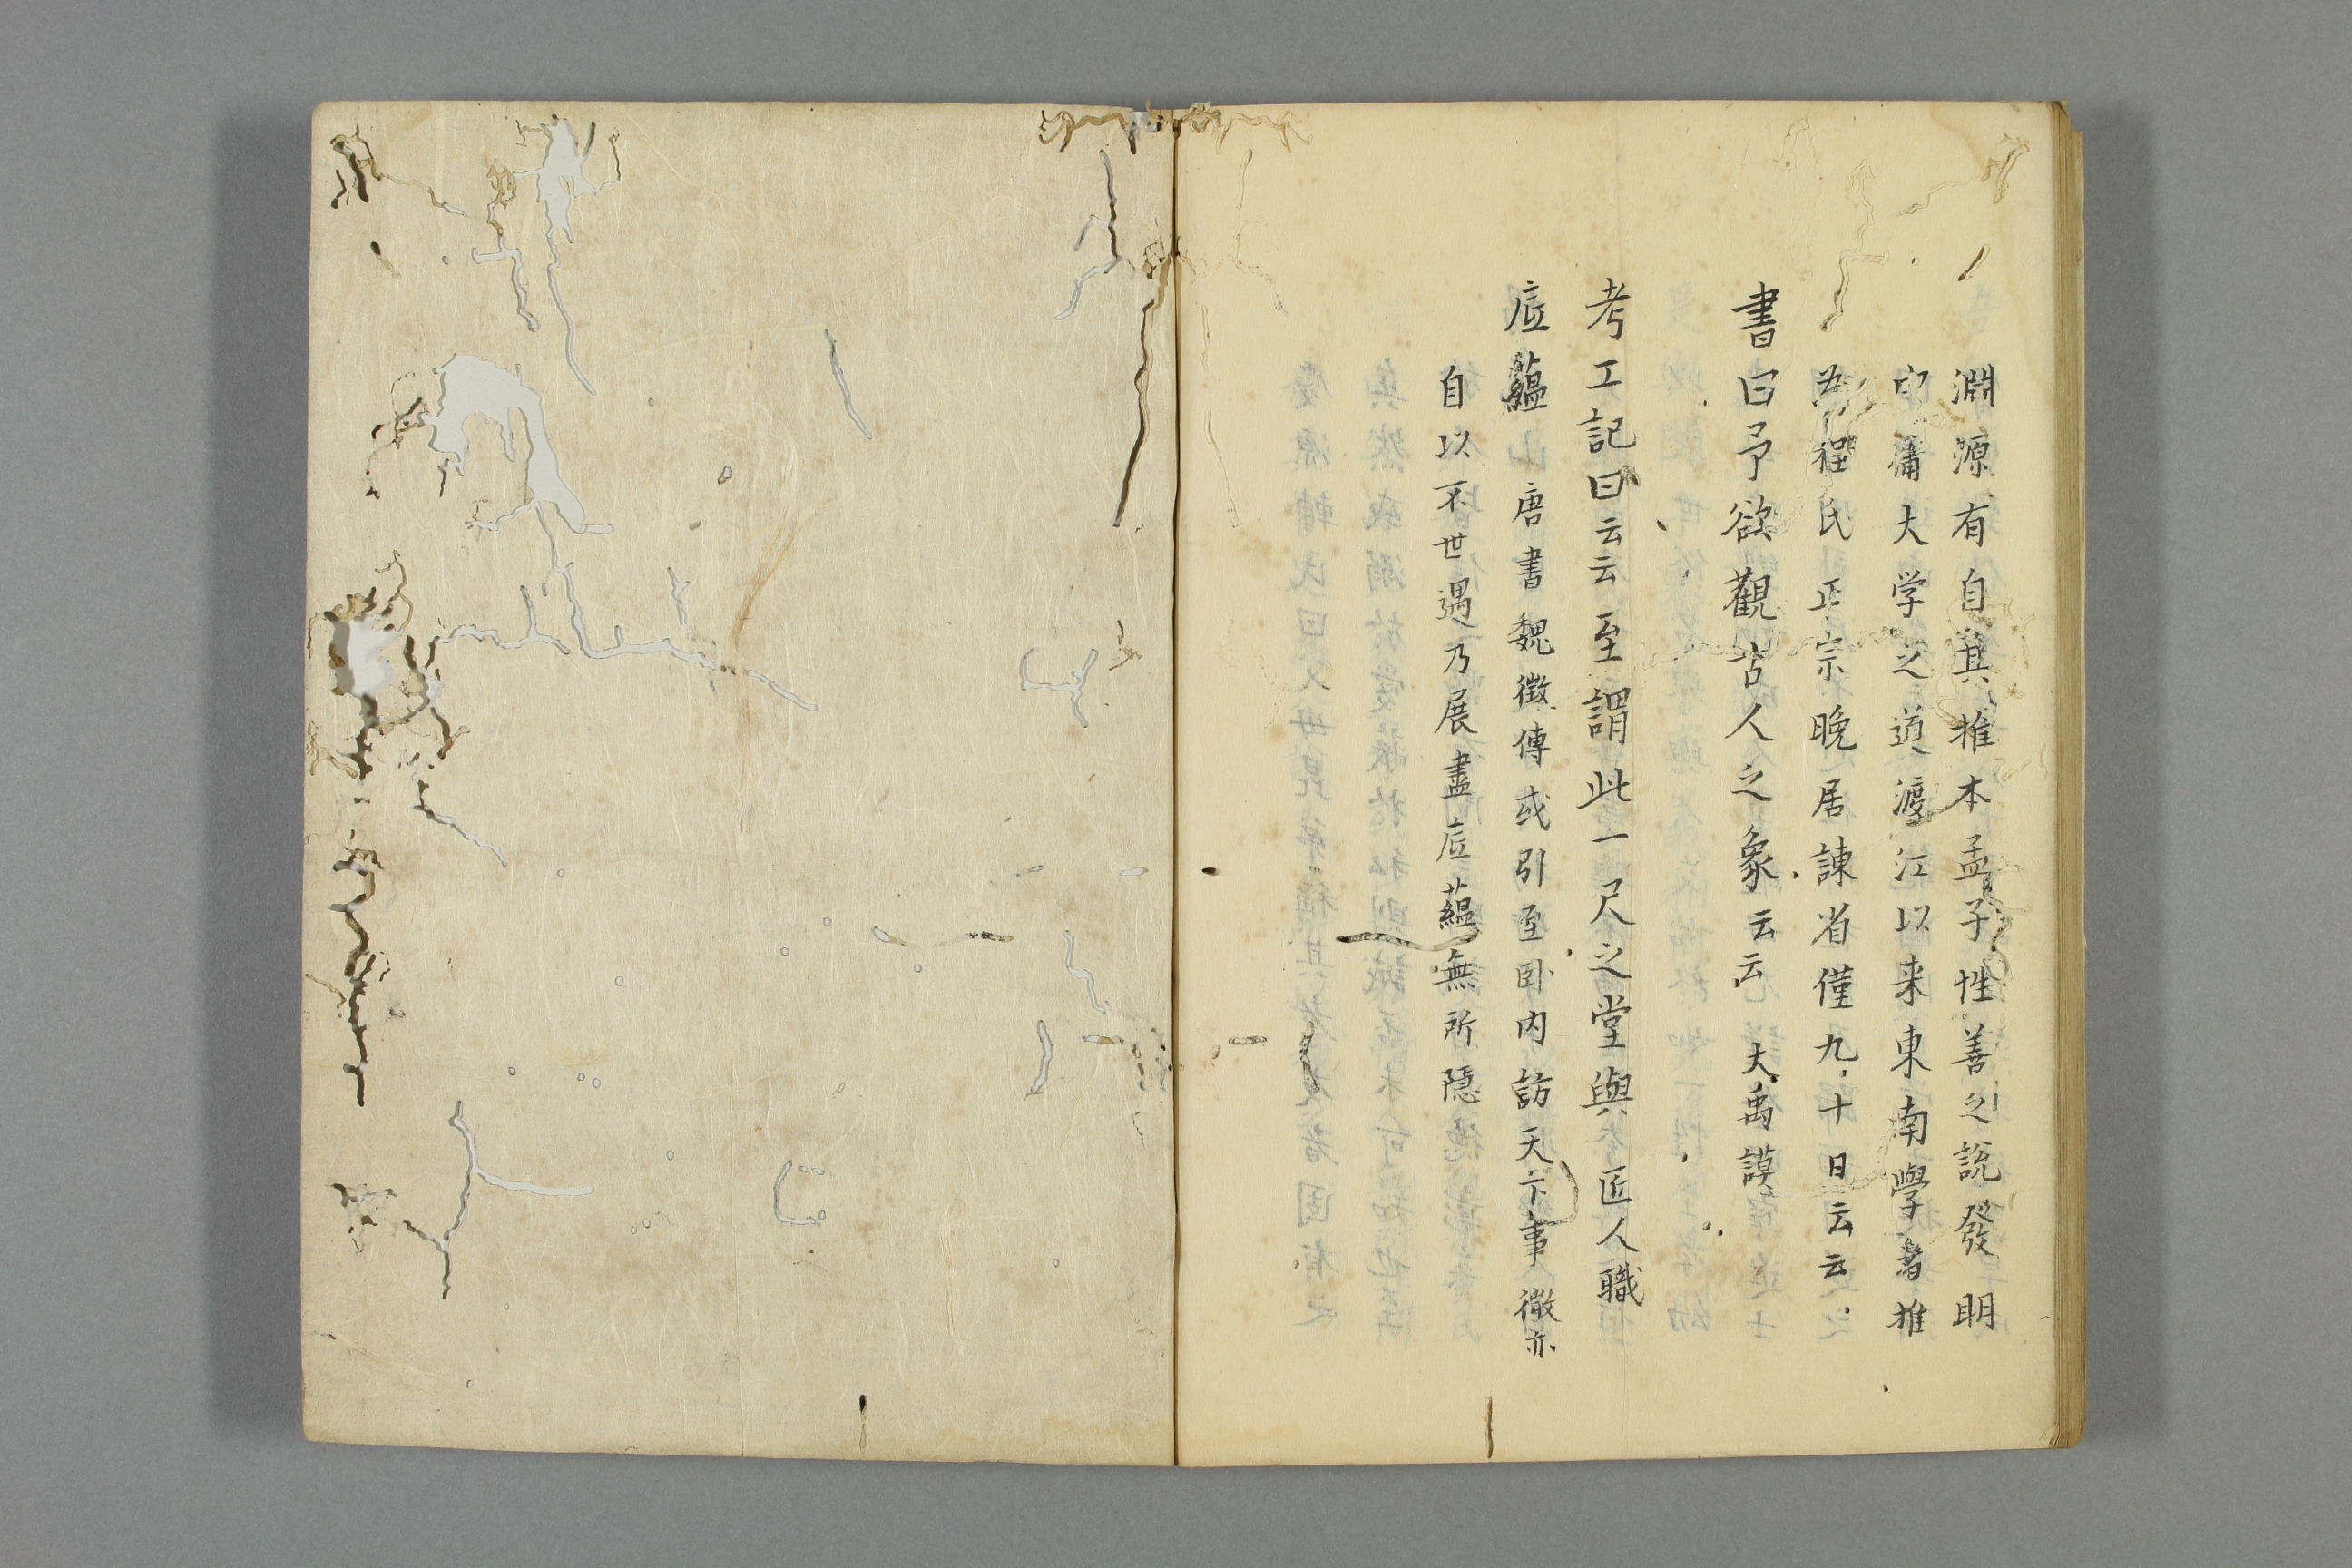 淵源有自其推本孟子性善之説發明
中庸大学之道渡江以来東南學者推
為程氏正宗晩居諌省僅九十日云云
書曰予欲觀古人之象云云大禹謨
考工記曰云云至謂此一尺之堂與匠人職
底蘊唐書魏徴傳或引至卧内訪天下事徴亦
自以不世遇乃展盡底蘊無所隠